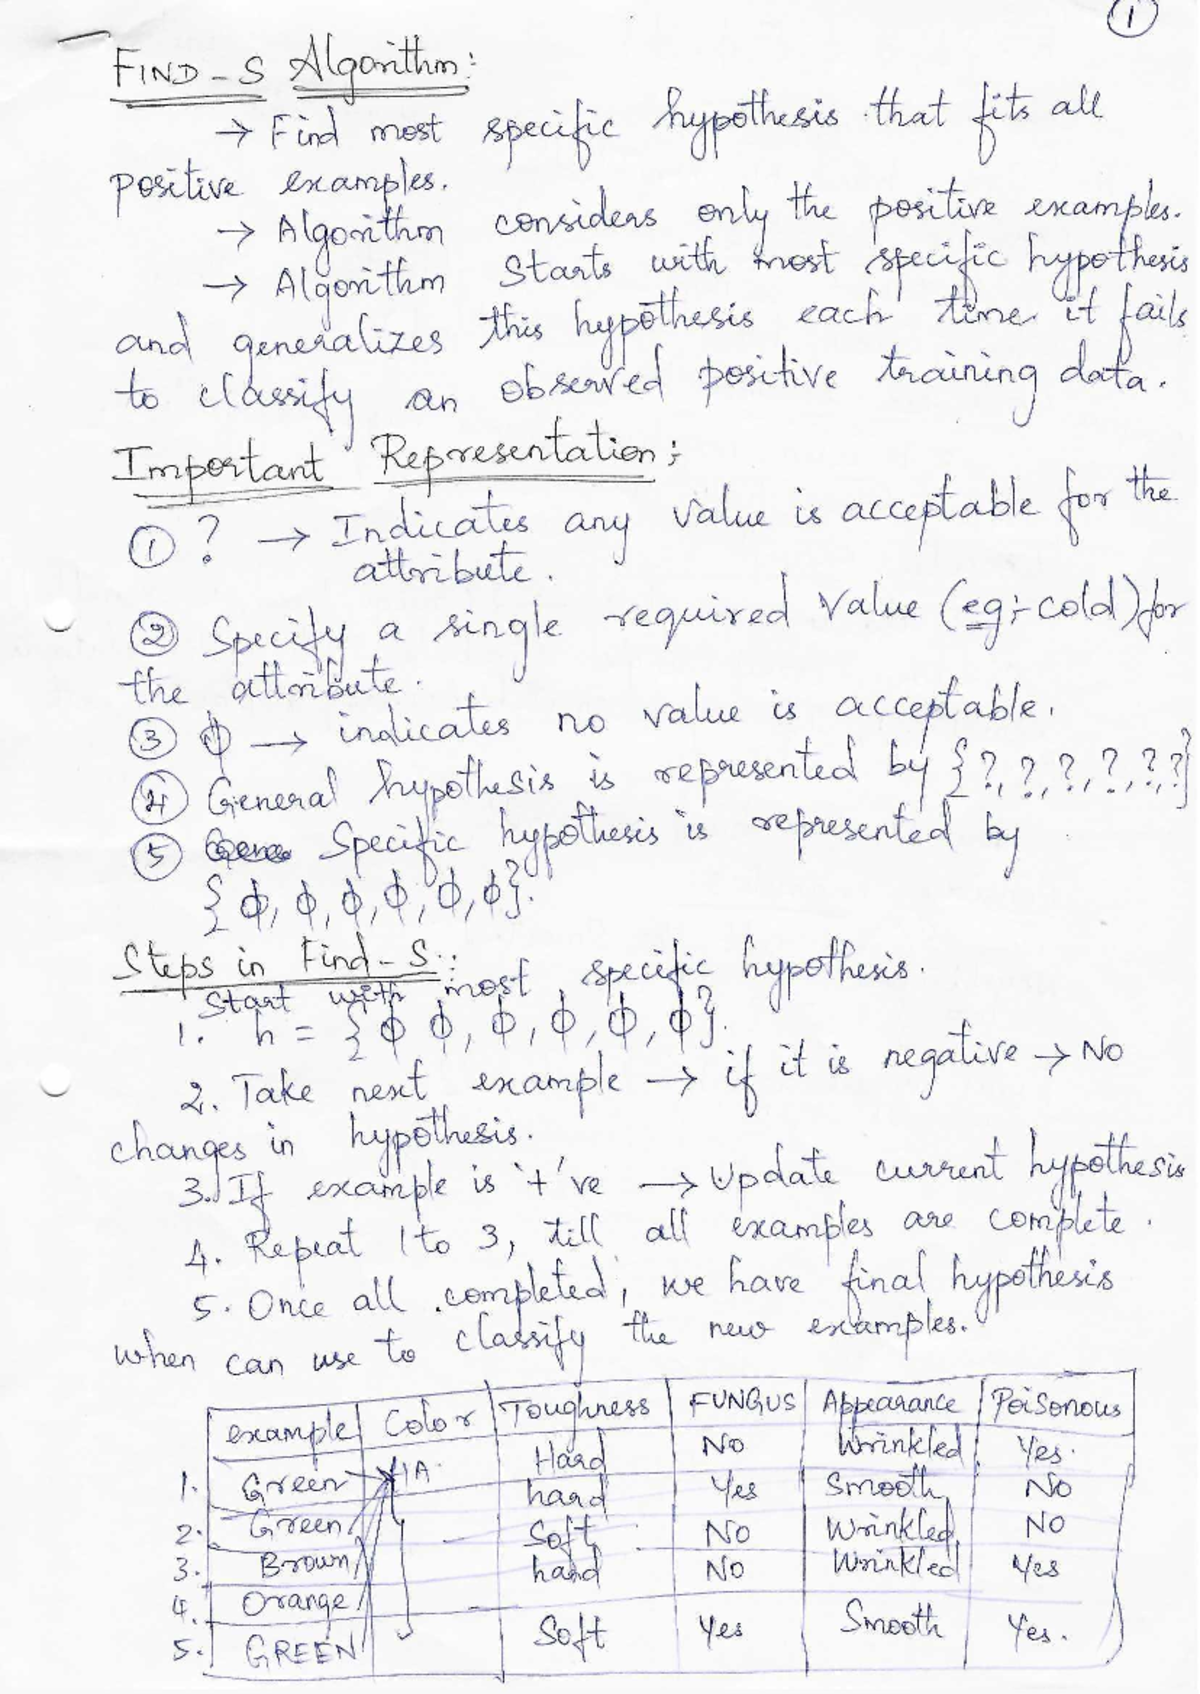 1
FIND-S Algorithm:
→ Find most specific hypothesis that fits all
positive examples.
→ Algorithm considers only the positive examples.
→ Algorithm Starts with most specific hypothesis
and generalizes this hypothesis each time it fails
to classify an observed positive training data.
Important Representation:
① ? → Indicates any value is acceptable for the
attribute.
② Specify a single required value (eg:-cold) for
the attribute.
③ ϕ → indicates no value is acceptable.
④ General hypothesis is represented by {?, ?, ?, ?, ?, ?}
⑤ Specific hypothesis is represented by
{ϕ, ϕ, ϕ, ϕ, ϕ, ϕ}.
Steps in Find-S:
Start with most specific hypothesis.
1. h = {ϕ ϕ, ϕ, ϕ, ϕ, ϕ}.
2. Take next example → if it is negative → No
changes in hypothesis.
3. If example is '+'ve → Update current hypothesis
4. Repeat 1 to 3, till all examples are complete.
5. Once all completed, we have final hypothesis
when can use to classify the new examples.
example Color Toughness FUNGUS Appearance Poisonous
1. Green Hard No Wrinkled Yes.
2. Green hard Yes Smooth No
3. Brown Soft No Wrinkled No
4. Orange hard No Wrinkled Yes
5. GREEN Soft Yes Smooth Yes.